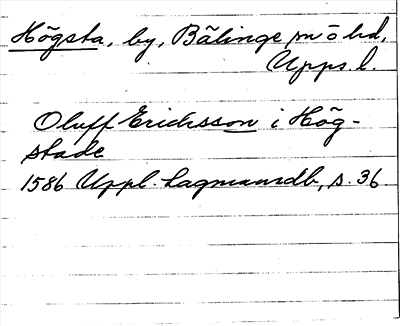 Högsta, by, Bälinge sn o hd,
Upps. l.
Oluff Ericksson i Hög-
stade
1586 Uppl. Lagmansdb, s. 36